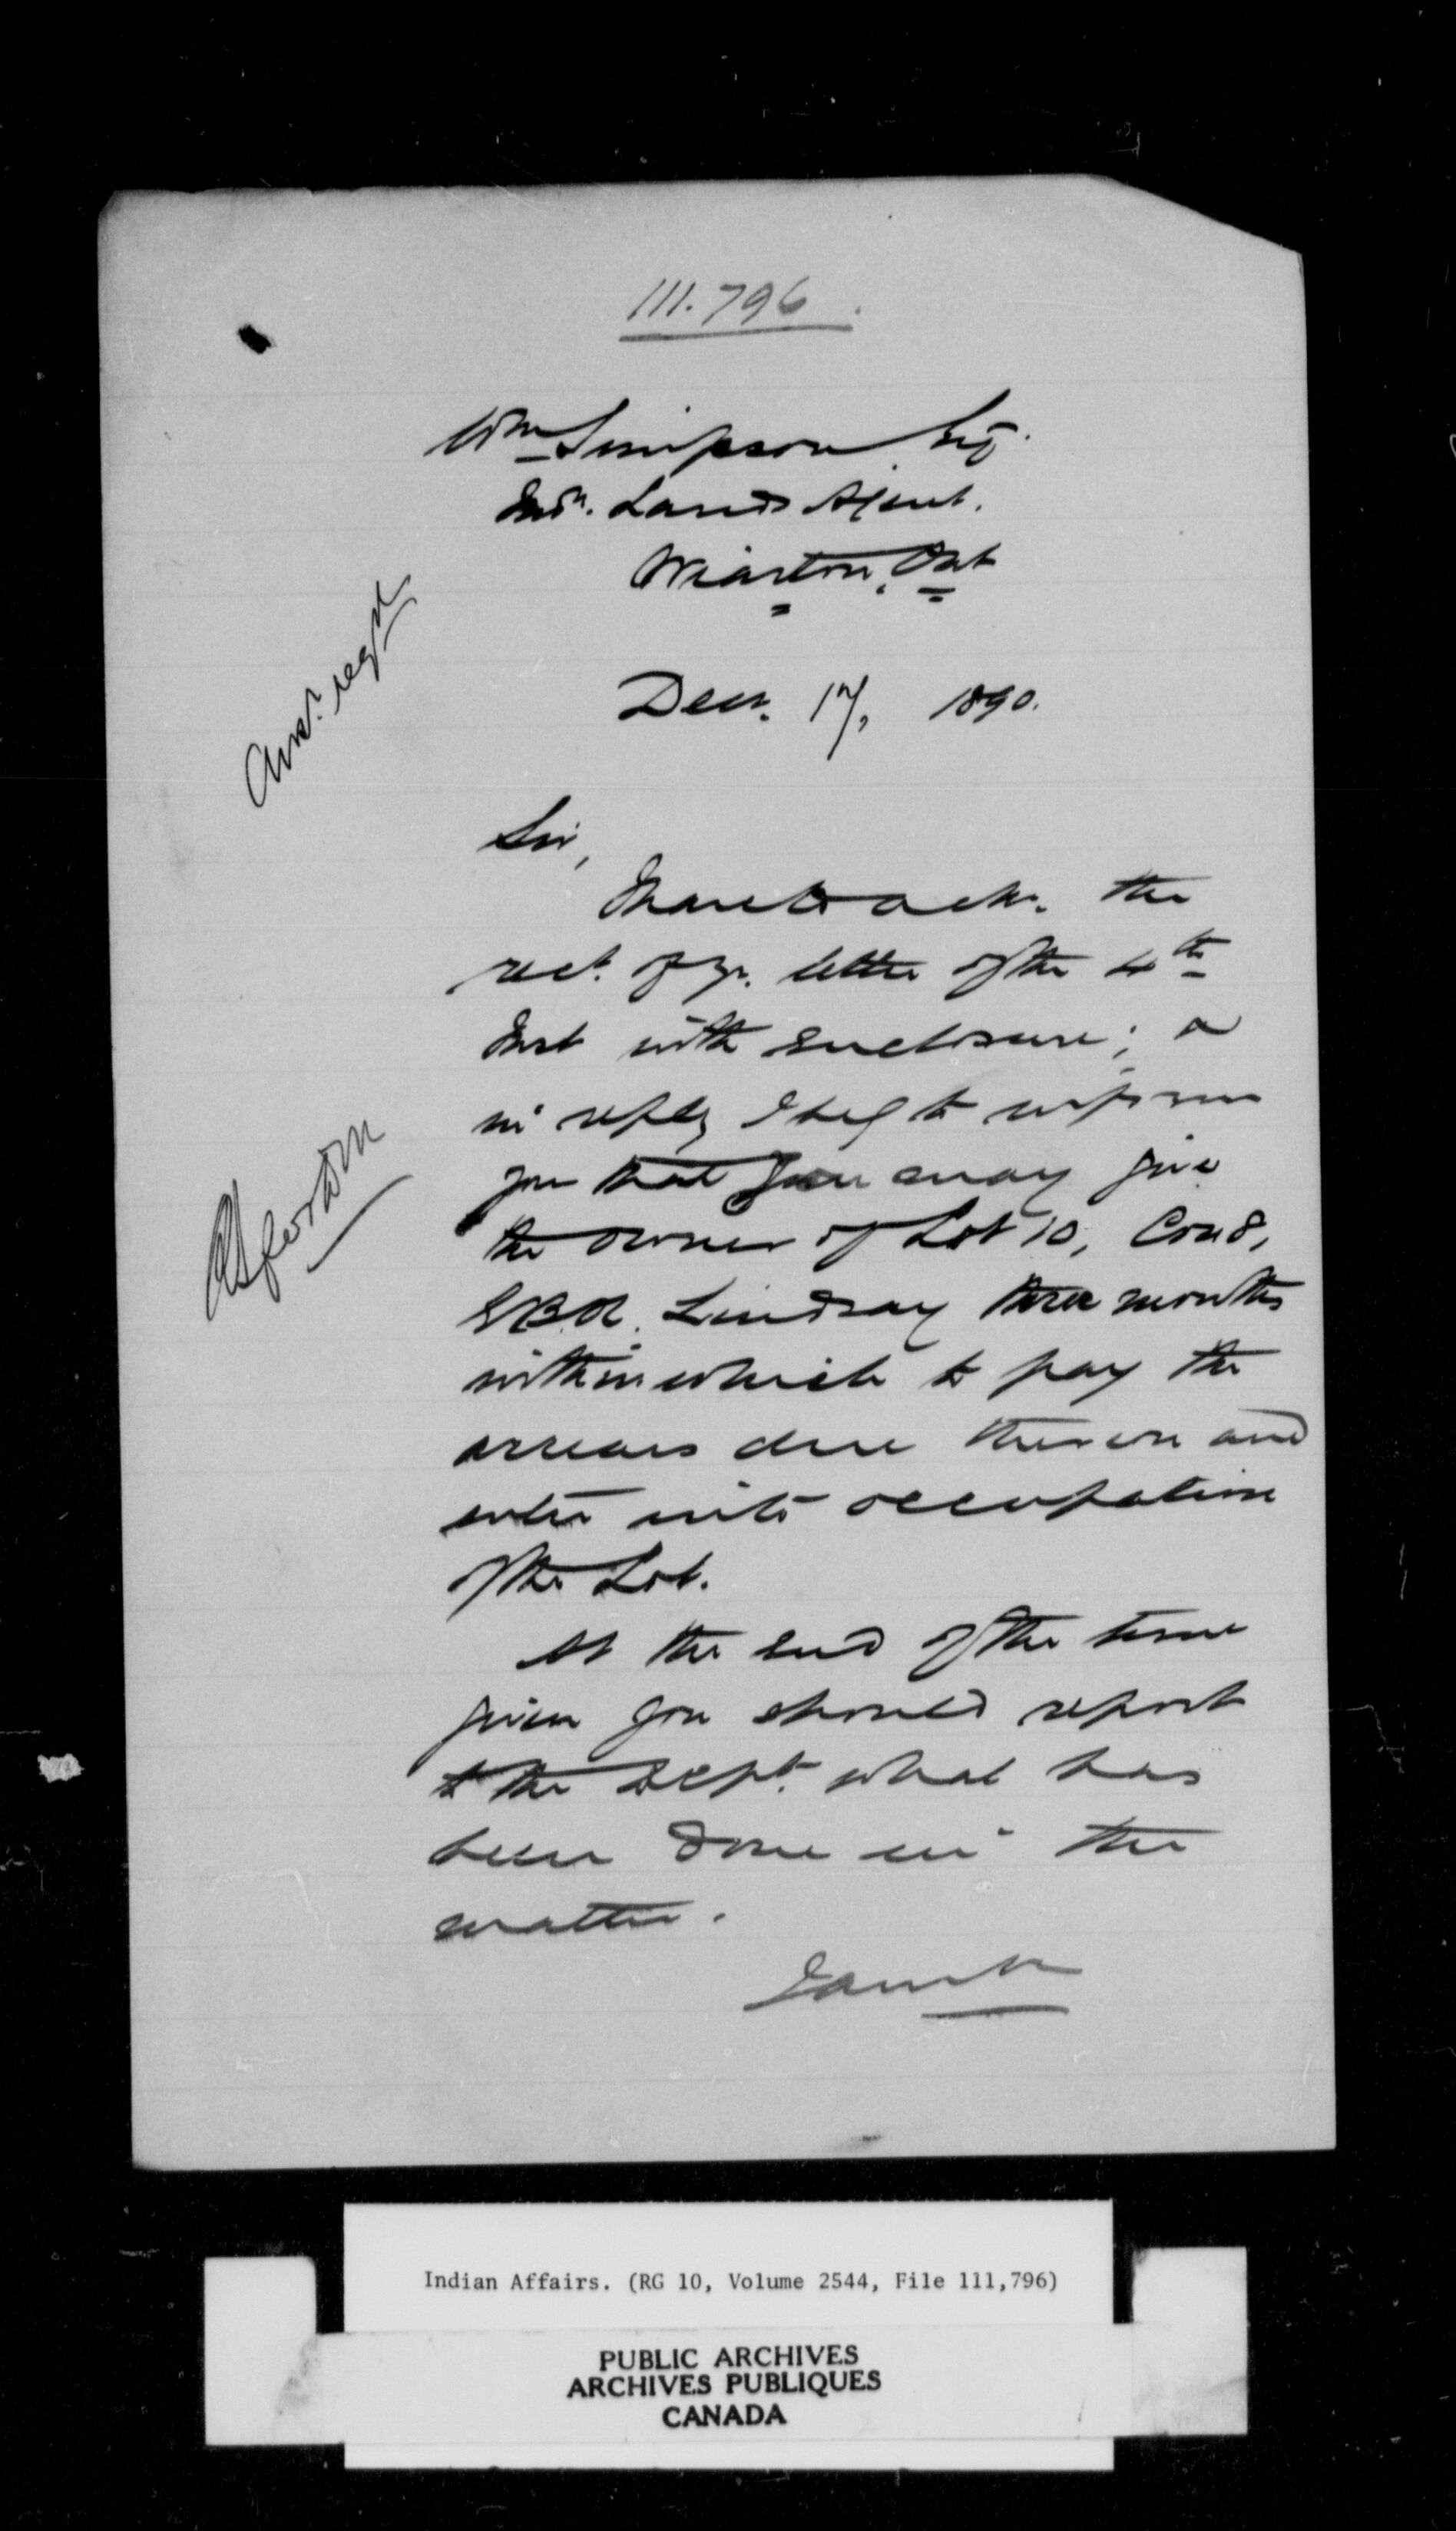 111.796.
Wm Simpson Esq.
Indn. Lands Agent.
Wiarton, Ont
Decr. 17, 1890.
Sir,
I have to ackn. the
rect. of yr. letter of the 4th
Inst with enclosure; &
in reply I beg to inform
you that you may give
the owner of Lot 10, Con 8,
E.B.R. Lindsay three months
within which to pay the
arrears due thereon and
enter into occupation
of the Lot.
At the end of the time
given you should report
to the Dept. what has
been done in the
matter.
Ansr. reqd
Indian Affairs. (RG 10, Volume 2544, File 111,796)
PUBLIC ARCHIVES
ARCHIVES PUBLIQUES
CANADA